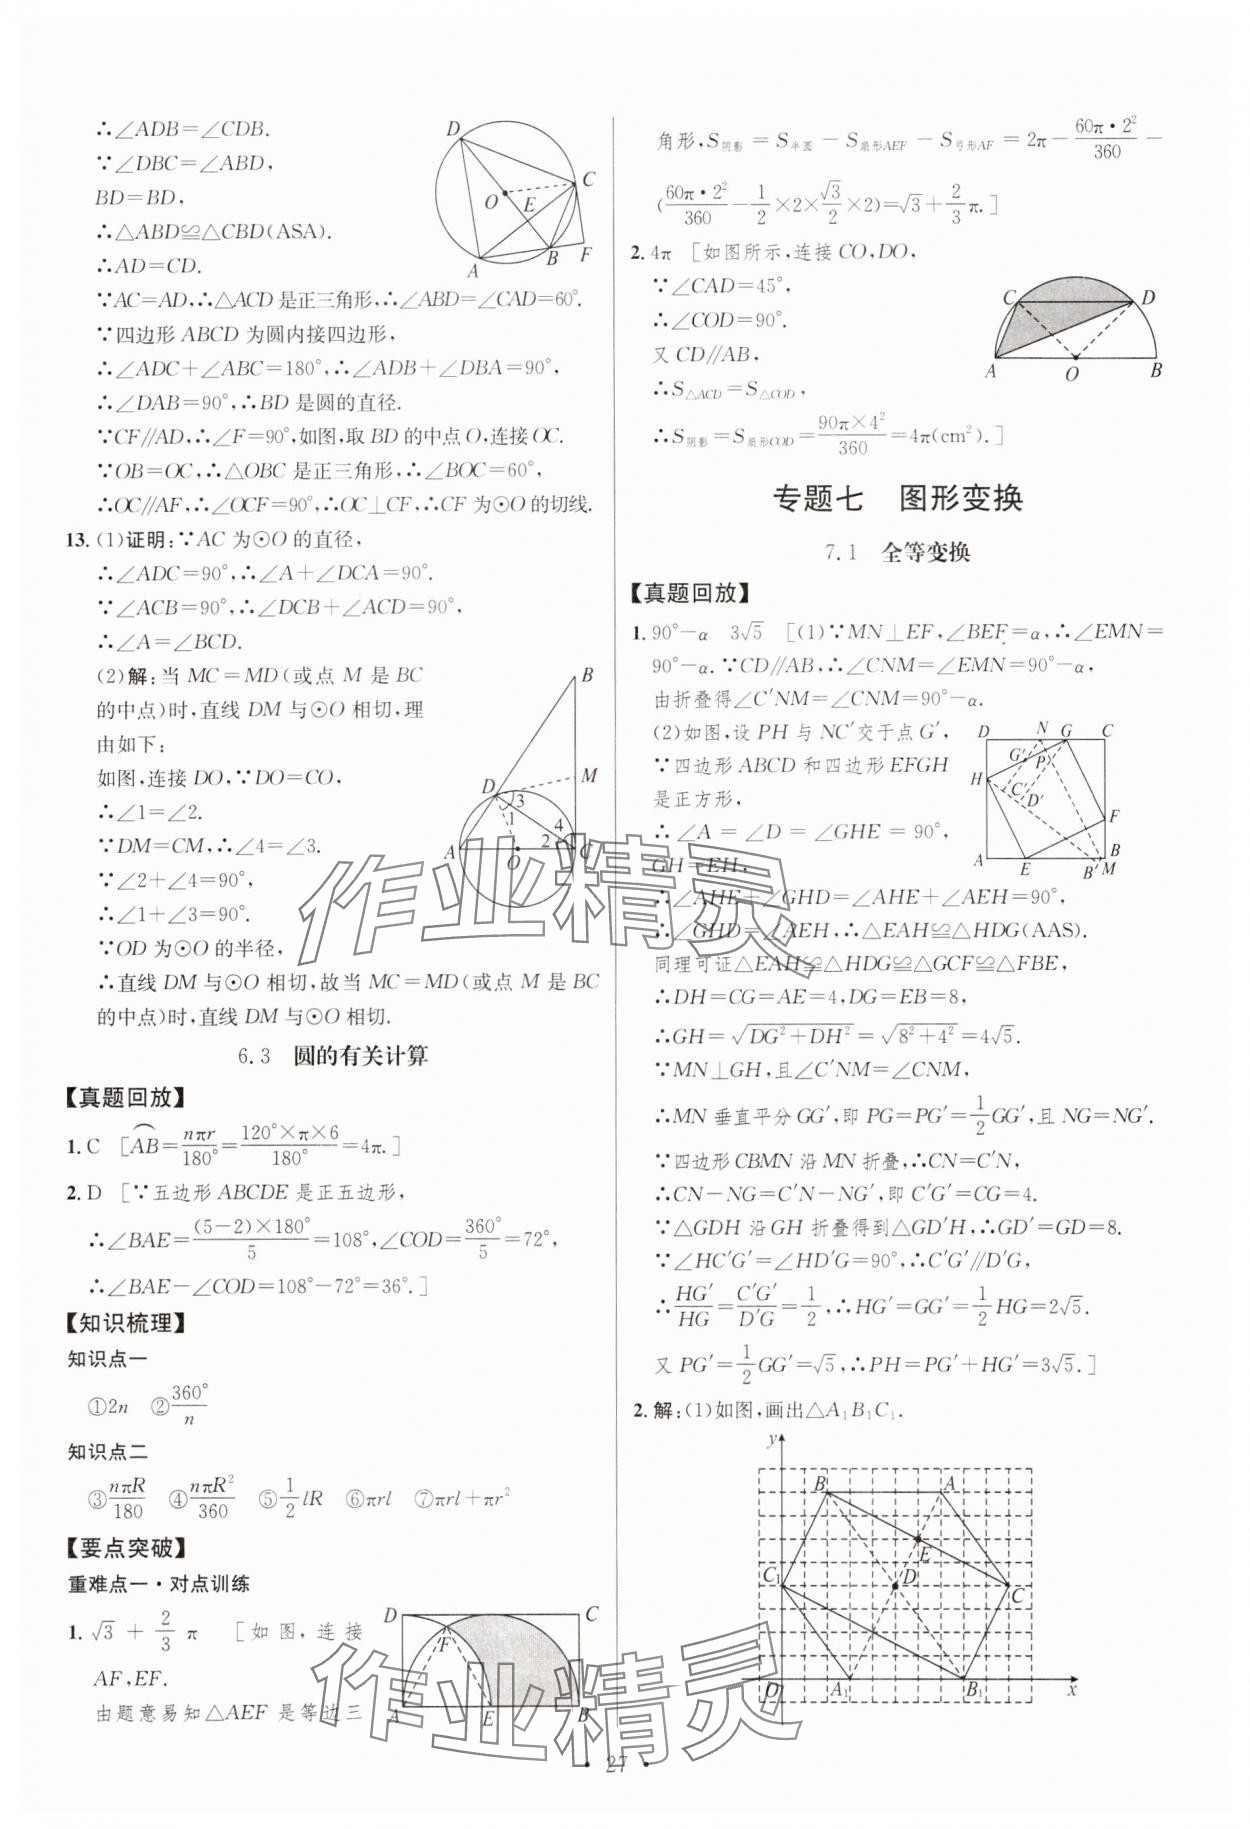 ∴∠ADB=∠CDB.
∵∠DBC=∠ABD,
BD=BD,
∴△ABD≌△CBD(ASA).
∴AD=CD.
∵AC=AD,∴△ACD是正三角形,∴∠ABD=∠CAD=60°.
∵四边形ABCD为圆内接四边形,
∴∠ADC+∠ABC=180°,∴∠ADB+∠DBA=90°,
∴∠DAB=90°,∴BD是圆的直径.
∵CF//AD,∴∠F=90°,如图,取BD的中点O,连接OC.
∵OB=OC,∴△OBC是正三角形,∴∠BOC=60°,
∴OC//AF,∴∠OCF=90°,∴OC⊥CF,∴CF为⊙O的切线.
13.(1)证明:∵AC为⊙O的直径,
∴∠ADC=90°,∴∠A+∠DCA=90°.
∵∠ACB=90°,∴∠DCB+∠ACD=90°,
∴∠A=∠BCD.
(2)解:当MC=MD(或点M是BC
的中点)时,直线DM与⊙O相切,理
由如下:
如图,连接DO,∵DO=CO,
∴∠1=∠2.
∵DM=CM,∴∠4=∠3.
∵∠2+∠4=90°,
∴∠1+∠3=90°.
∵OD为⊙O的半径,
∴直线DM与⊙O相切,故当MC=MD(或点M是BC
的中点)时,直线DM与⊙O相切.
6.3 圆的有关计算
【真题回放】
1.C [⌒AB=nπr/180°=120°×π×6/180°=4π.]
2.D [∵五边形ABCDE是正五边形,
∴∠BAE=(5-2)×180°/5=108°,∠COD=360°/5=72°,
∴∠BAE-∠COD=108°-72°=36°.]
【知识梳理】
知识点一
①2n ②360°/n
知识点二
③nπR/180 ④nπR²/360 ⑤1/2lR ⑥πrl ⑦πrl+πr²
【要点突破】
重难点一·对点训练
1.√3+2/3π [如图,连接
AF,EF.
由题意易知△AEF是等边三
D C F A E B
角形,S阴影=S半圆-S扇形AEF-S弓形AF=2π-60π·2²/360-
(60π·2²/360-1/2×2×√3/2×2)=√3+2/3π.]
2.4π [如图所示,连接CO,DO,
∵∠CAD=45°,
∴∠COD=90°.
又CD//AB,
∴S△ACD=S△COD,
∴S阴影=S扇形COD=90π×4²/360=4π(cm²).]
专题七 图形变换
7.1 全等变换
【真题回放】
1.90°-α 3√5 [(1)∵MN⊥EF,∠BEF=α,∴∠EMN=
90°-α.∵CD//AB,∴∠CNM=∠EMN=90°-α,
由折叠得∠C′NM=∠CNM=90°-α.
(2)如图,设PH与NC′交于点G′,
∵四边形ABCD和四边形EFGH
是正方形,
∴∠A=∠D=∠GHE=90°,
GH=EH,
∴∠AHE+∠GHD=∠AHE+∠AEH=90°,
∴∠GHD=∠AEH,∴△EAH≌△HDG(AAS).
同理可证△EAH≌△HDG≌△GCF≌△FBE,
∴DH=CG=AE=4,DG=EB=8,
∴GH=√(DG²+DH²)=√(8²+4²)=4√5.
∵MN⊥GH,且∠C′NM=∠CNM,
∴MN垂直平分GG′,即PG=PG′=1/2GG′,且NG=NG′.
∵四边形CBMN沿MN折叠,∴CN=C′N,
∴CN-NG=C′N-NG′,即C′G′=CG=4.
∵△GDH沿GH折叠得到△GD′H,∴GD′=GD=8.
∵∠HC′G′=∠HD′G=90°,∴C′G′//D′G,
∴HG′/HG=C′G′/D′G=1/2,∴HG′=GG′=1/2HG=2√5.
又PG′=1/2GG′=√5,∴PH=PG′+HG′=3√5.]
2.解:(1)如图,画出△A₁B₁C₁.
y B A E D C₁ C O A₁ B₁ x
作业精灵
作业精灵
·27·